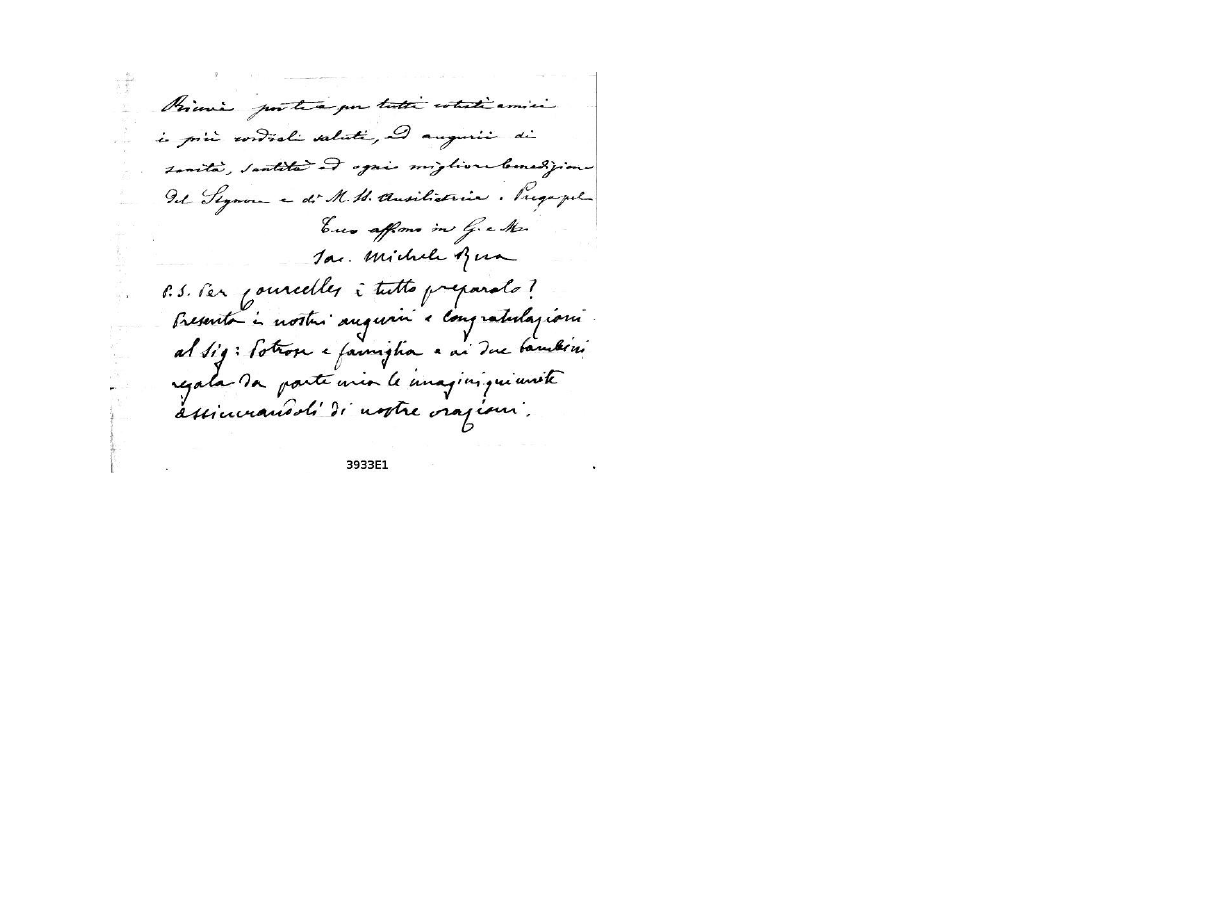 Ricevi per te e per tutti cotesti amici
i più cordiali saluti, ed augurii di
sanità, santità ed ogni migliore benedizione
del Signore e di M. SS. Ausiliatrice. Prega pel
Tuo affmo in G. e M.
Sac. Michele Rua
P.S. Per Courcelles è tutto preparato?
Presenta i nostri augurii e congratulazioni
al Sig: e famiglia e ai due bambini
regala da parte mia le imagini qui unite
assicurandoli di nostre orazioni.
3933E1